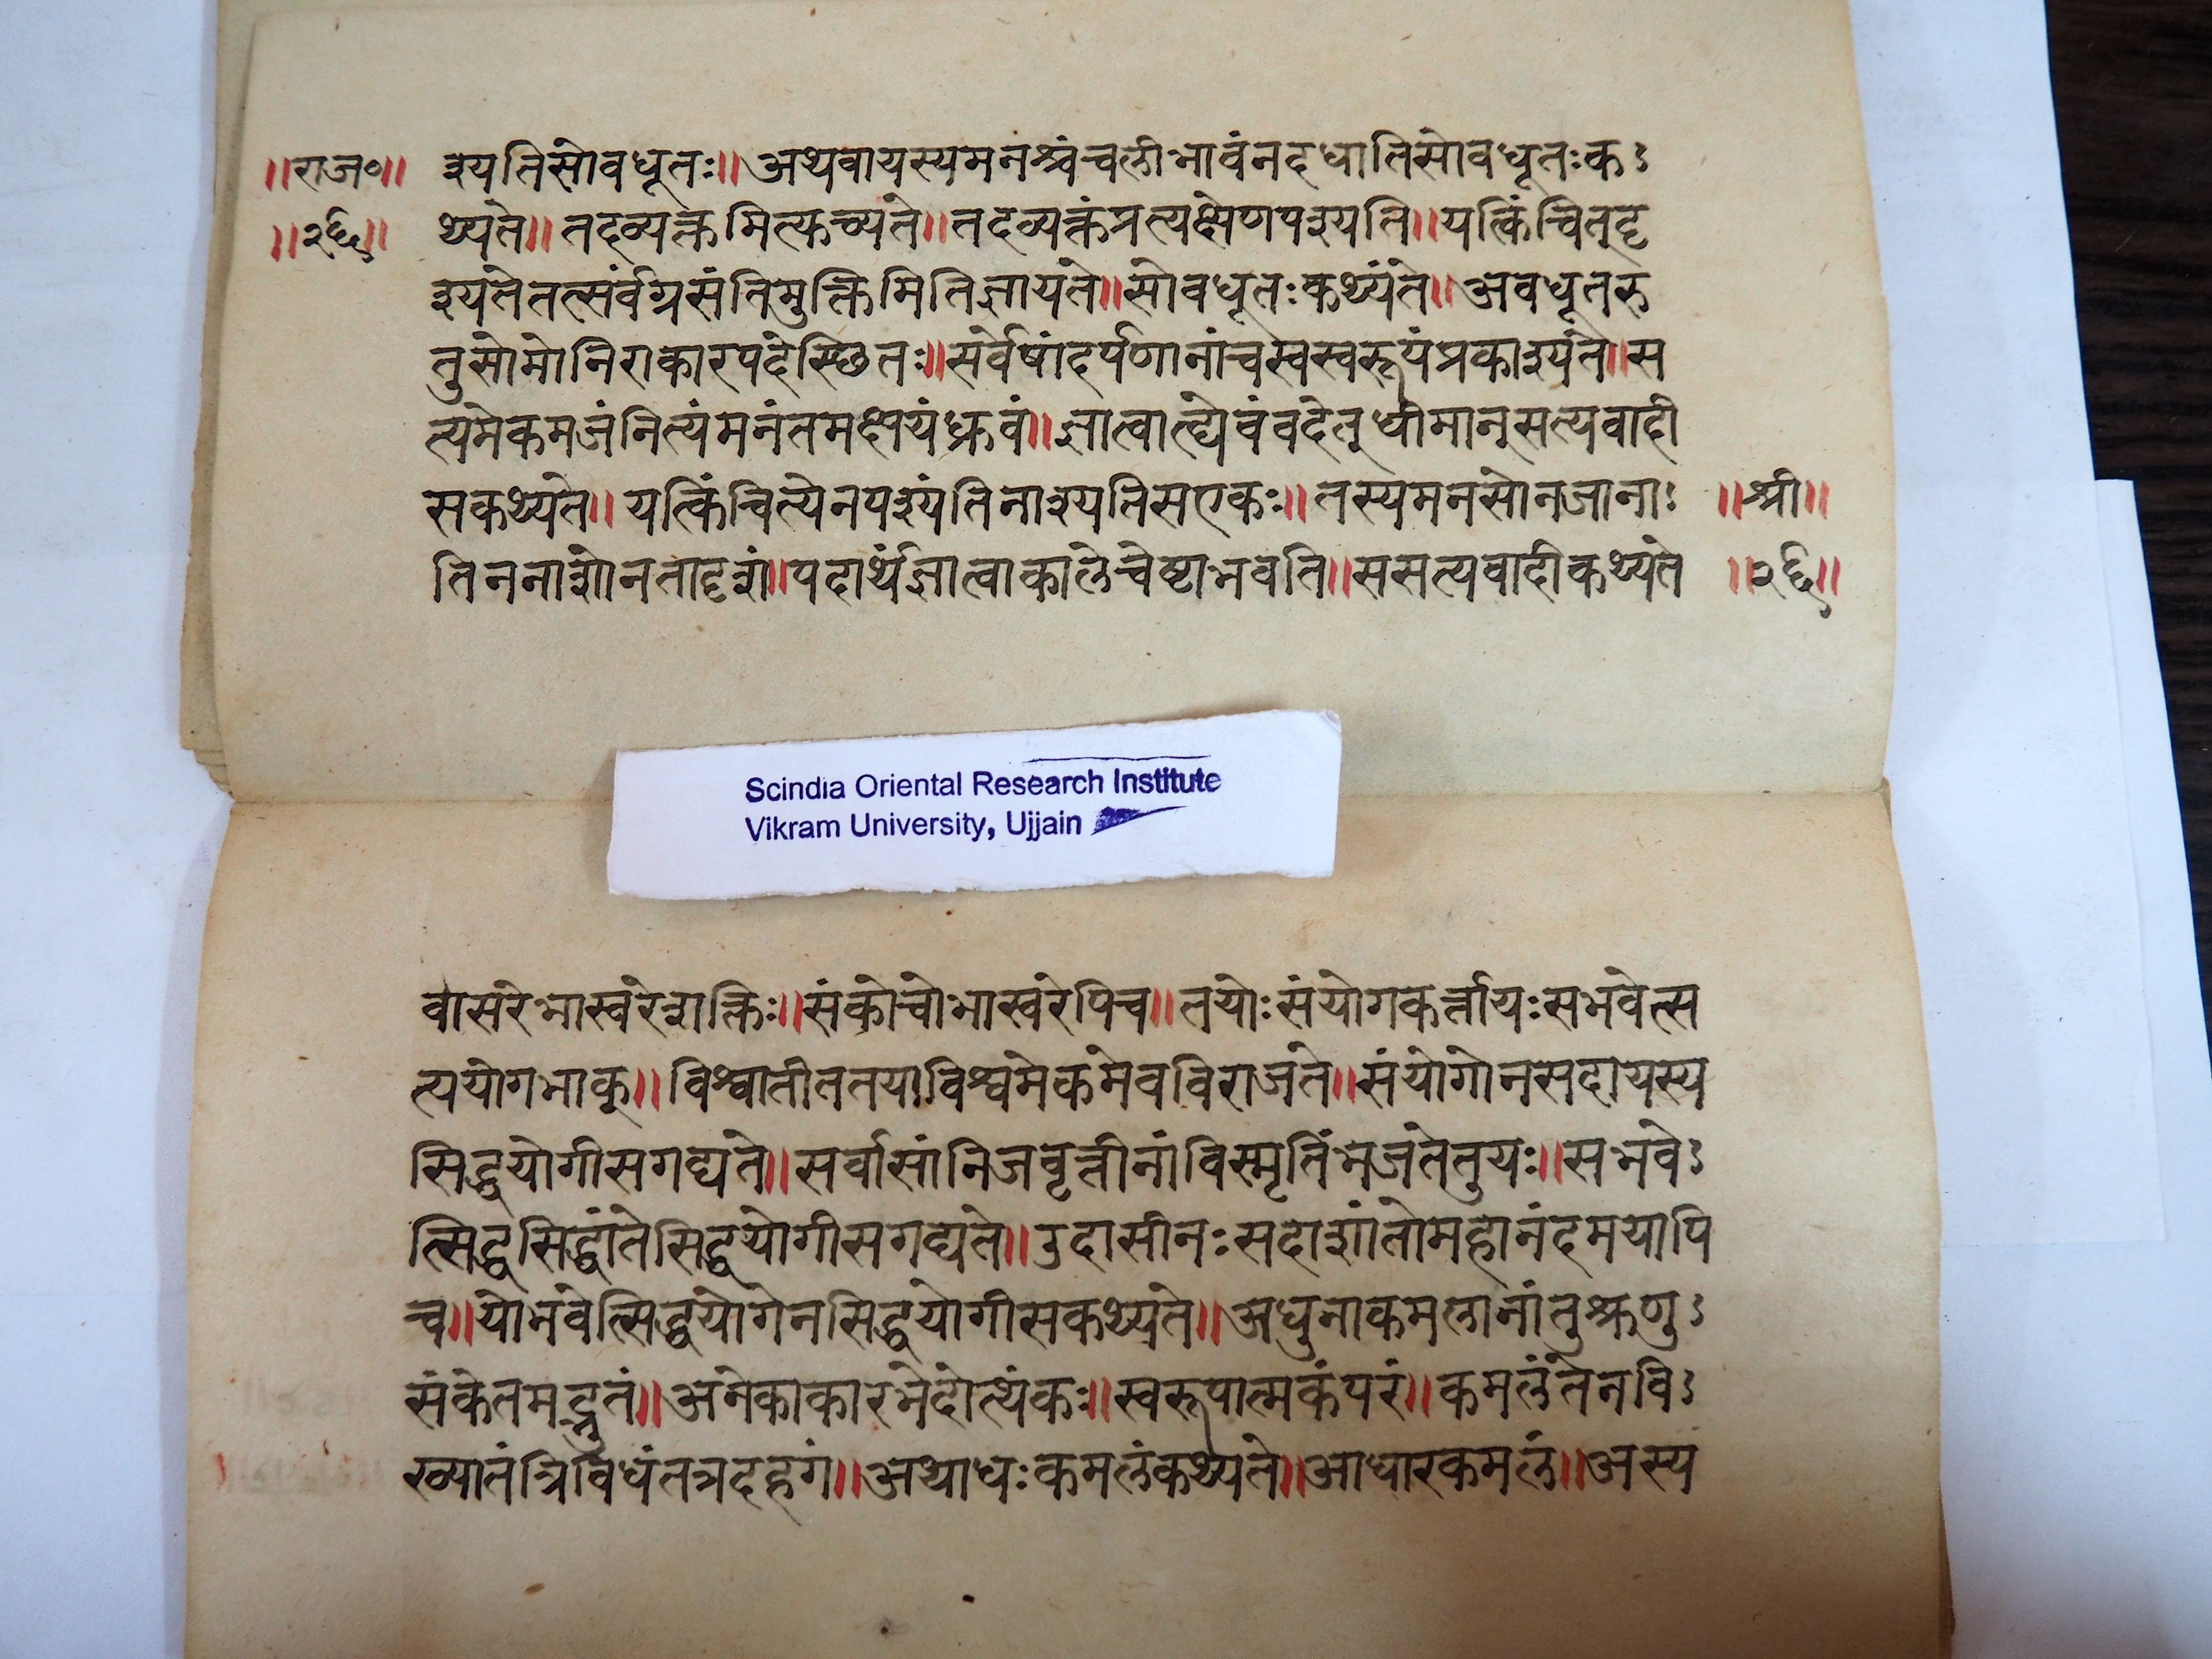 ॥राज०॥ श्यतिसोवधूतः॥ अथवायस्यमनश्चंचलीभावंनदधातिसोवधूतःक
॥२६॥ थ्यते॥ तदव्यक्तमित्फच्यते॥ तदव्यक्तंप्रत्यक्षेणपश्यति॥ यत्किंचित्दृ
श्यतेतत्सर्वंग्रसंतिमुक्तिमितिज्ञायते॥ सोवधूतःकथ्यंते॥ अवधूतरु
तुसोमोनिराकारपदेस्छितः॥ सर्वेषांदर्पणानांचस्वस्वरूपंप्रकाश्यंते॥ स
त्यमेकमजंनित्यंमनंतमक्षयंध्रुवं॥ ज्ञात्वात्ह्येवंवदेत्धीमान्सत्यवादी
सकथ्यते॥ यत्किंचित्येनपश्यंतिनाश्यतिसएकः॥ तस्यमनसोनजाना ॥श्री॥
तिननाशोनतादृशं॥ पदार्थंज्ञात्वाकालेचेष्टाभवति॥ ससत्यवादीकथ्यते ॥२६॥
Scindia Oriental Research Institute
Vikram University, Ujjain
वासरेभास्वरेशक्तिः॥ संकोचोभास्वरेपिच॥ तयोःसंयोगकर्त्तायःसभवेत्स
त्ययोगभाक्॥ विश्वातीततयाविश्वमेकमेवविराजते॥ संयोगोनसदायस्य
सिद्धयोगीसगद्यते॥ सर्वासांनिजवृत्तीनांविस्मृतिंभजंतेतुयः॥ सभवे
त्सिद्धसिद्धांतेसिद्धयोगीसगद्यते॥ उदासीनःसदाशांतोमहानंदमयोपि
च॥ योभवेत्सिद्धयोगेनसिद्धयोगीसकथ्यते॥ अधुनाकमलानांतुश्रुणु
संकेतमद्भुतं॥ अनेकाकारभेदोत्थंकः॥ स्वरूपात्मकंपरं॥ कमलंतेनवि
ख्यातंत्रिविधंतत्रदहगं॥ अथाधःकमलंकथ्यते॥ आधारकमलं॥ अस्य